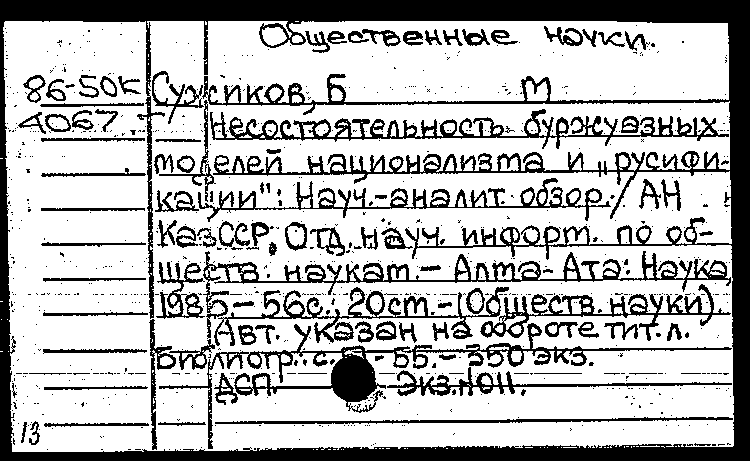 Общественные науки.
86-50к Сужиков, Б М
4067
Несостоятельность буржуазных
моделей национализма и „русифи-
кации": Науч.-аналит. обзор./ АН
КазССР, Отд. науч. информ. по об-
ществ. наукам.- Алма-Ата: Наука,
1985.- 56с.; 20см.-(Обществ. науки).
Авт. указан на обороте тит. л.
Библиогр.: с. - 55.- 350 экз.
ДСП. Экз.N011.
13